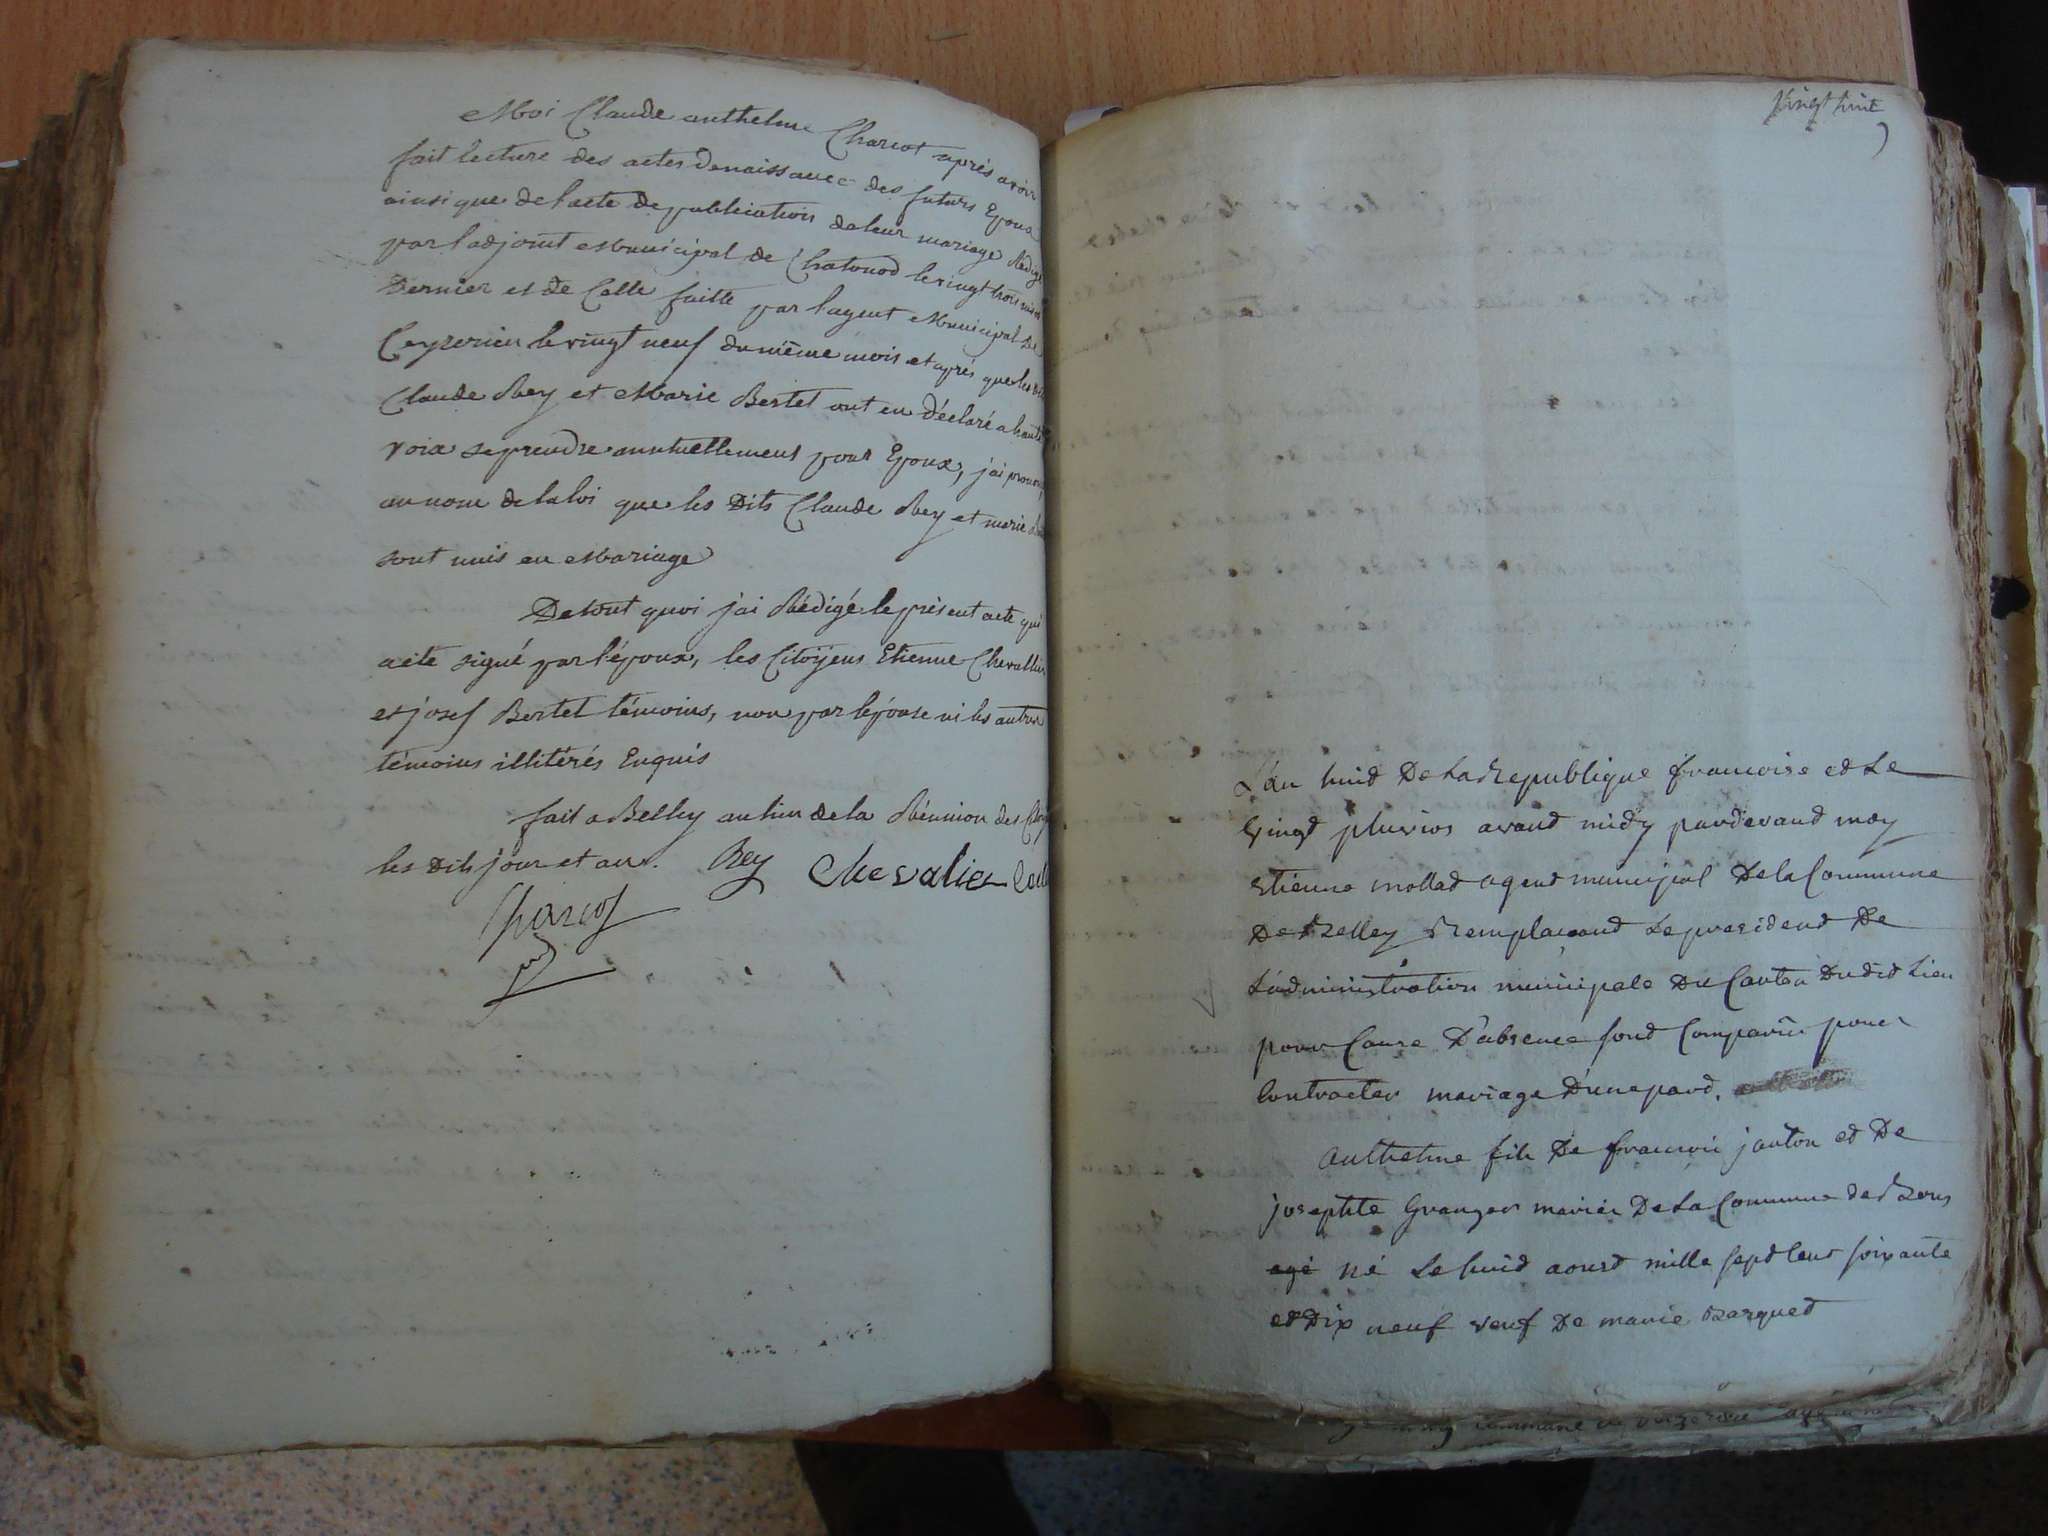 Moi Claude anthelme Charcot après avoir
fait lecture des actes denaissance des futurs Epoux
ainsi que de lacte de publication de leur mariage Rédigé
par ladjoint Municipal de Chatonod le vingt trois
Dernier et de Celle faitte par lagent Municipal de
Ceyzerieu le vingt neuf du même mois et après que les
Claude Rey et Marie Bertet ont eu déclaré a haute
voix se prendre mutuellement pour Epoux, j'ai
au nom de la loi que les Dits Claude Rey et marie
sont unis en Mariage
De tout quoi j'ai Rédigé le présent acte qui
a été signé par l'époux, les Citoÿens Etienne Chevallier
et josef Bertet témoins, non par lépouse ni les autres
témoins illitérés Enquis
fait a Belley au lieu de la Réunion des
les Dits jour et an. Rey Chevalier
Charcot
vingt huit
L'an huid De La Republique francoise ed Le
vingd pluvios avand midy pardevand moy
Etienne mollad agend municipal De la Commune
De Belley Remplacand Le presidend De
L'administration municipale Du Canton Dudid Lieu
pour Cause D'absence sond Comparû pour
Contracter mariage D'une pard.
Anthelme fils De francois janton ed De
josephte Granger mariés De La Commune de Bons
agé né Le huid aousd mille sepd Cent soixante
ed Dix neuf veuf De marie